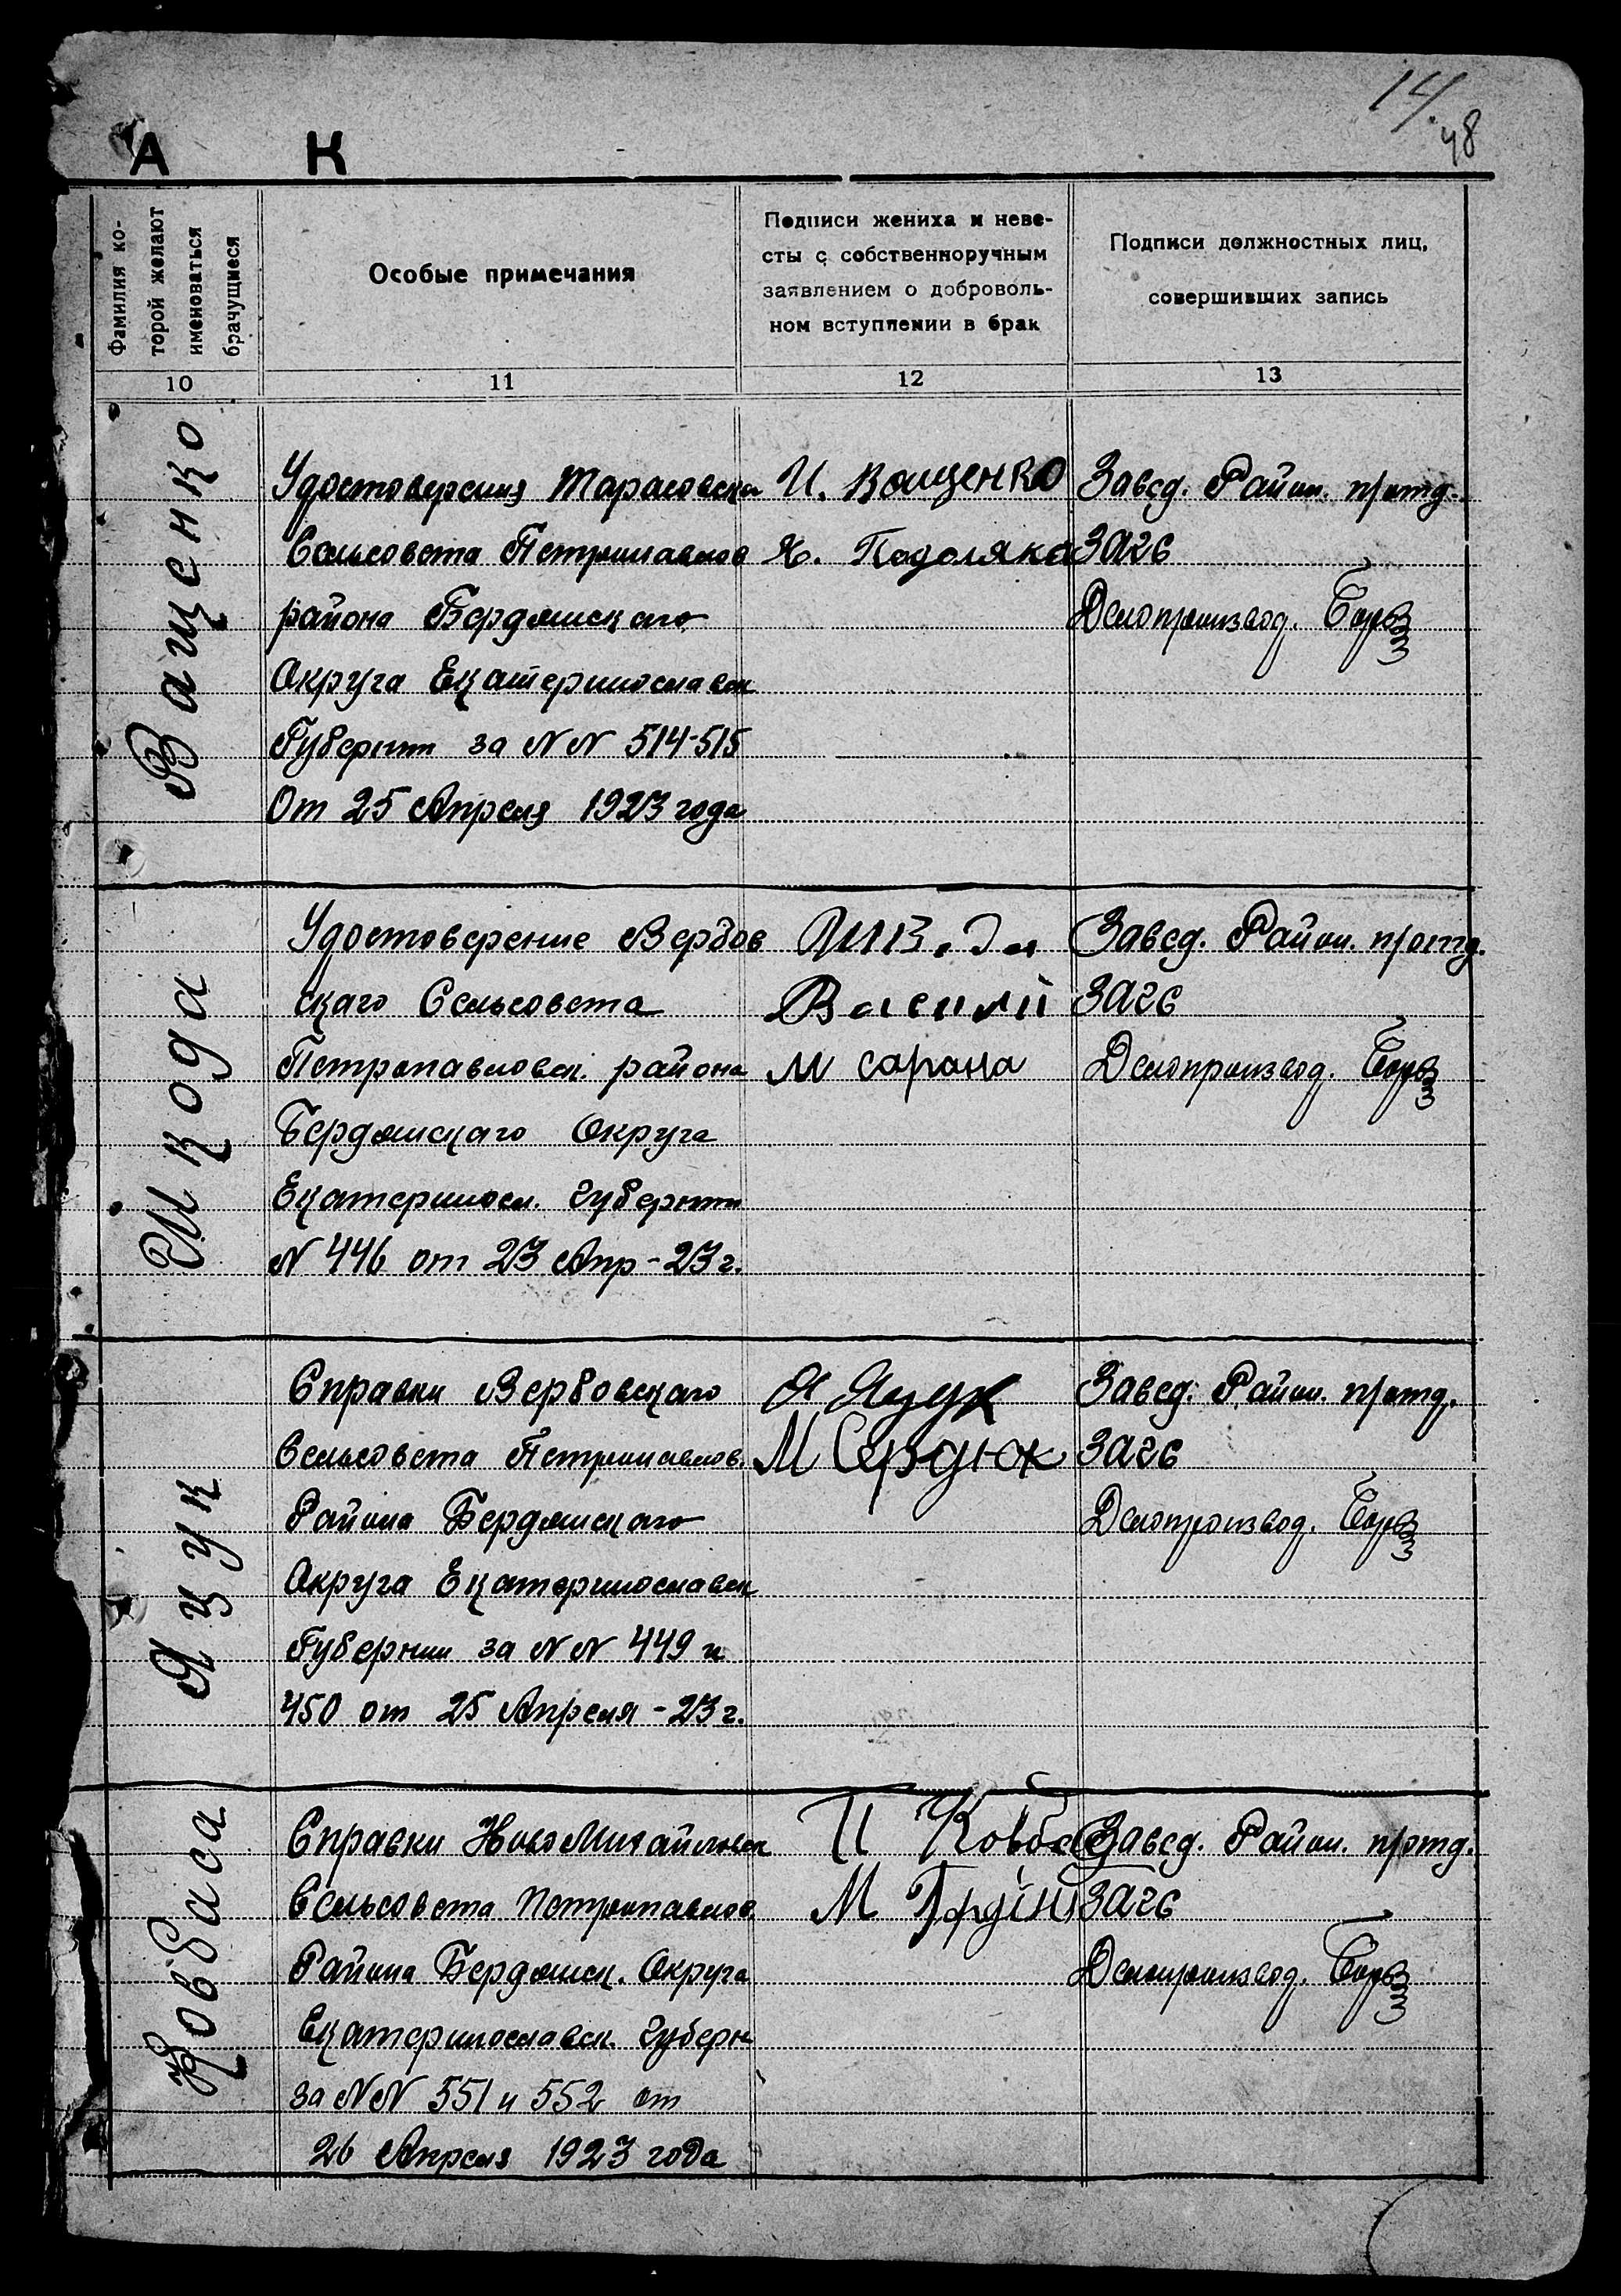 14.
48
А К
Фамилия ко-
торой желают
именоваться
брачущиеся
Особые примечания
Подписи жениха и неве-
сты с собственноручным
заявлением о доброволь-
ном вступлении в брак
Подписи должностных лиц,
совершивших запись
10
11
12
13
Ващенко
Удостоверения Тарасовска
Сельсовета Петропавлов
района Бердянскаго
Округа Екатеринославск
Губернии за NN 514-515
От 25 Апреля 1923 года
И. Ващенко
Х. Подоляка
Завед. Район. п/отд.
ЗАГС
Делопроизвод.
Шкода
Удостоверение Вербов
скаго Сельсовета
Петропавловск. района
Бердянскаго Округа
Екатериносл. губернии
N 446 от 23 Апр-23г.
Василий
М сарана
Завед. Район. п/отд.
ЗАГС
Делопроизвод.
Яцук
Справки Вербовскаго
Сельсовета Петропавлов.
Района Бердянскаго
Округа Екатеринославск
Губернии за NN 449 и
450 от 25 Апреля-23г.
Я Яцук
М Сердюк
Завед. Район. п/отд.
ЗАГС
Делопроизвод.
Ковбаса
Справки НовоМихайловск
Сельсовета Петропавлов.
Района Бердянск. Округа
Екатеринославск. губерн
за NN 551 и 552 от
26 Апреля 1923 года
И Ковба
М
Завед. Район. п/отд.
ЗАГС
Делопроизвод.